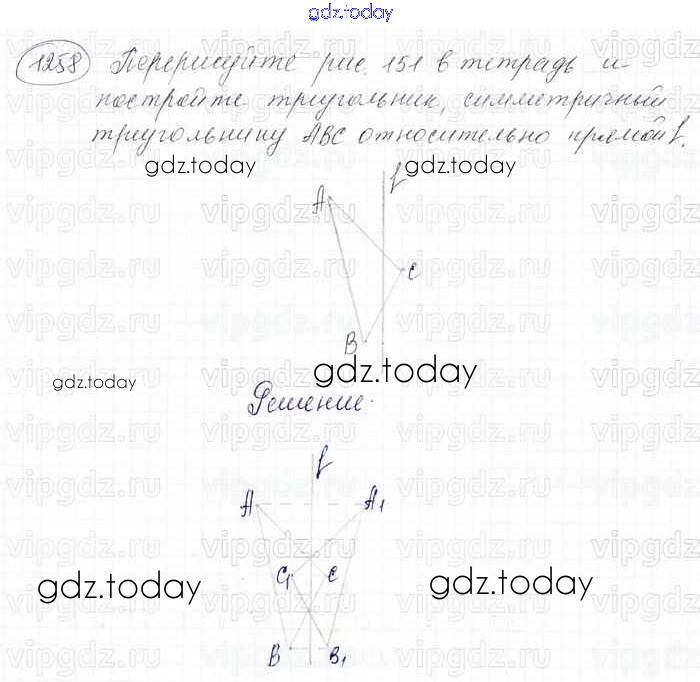 gdz.today
1258 Перерисуйте рис. 151 в тетрадь и
постройте треугольник, симметричный
треугольнику ABC относительно прямой f.
gdz.today gdz.today
f
A
C
B
gdz.today
gdz.today
Решение.
f
A A1
C1 C
gdz.today gdz.today
B B1
vipgdz.ru vipgdz.ru vipgdz.ru vipgdz.ru